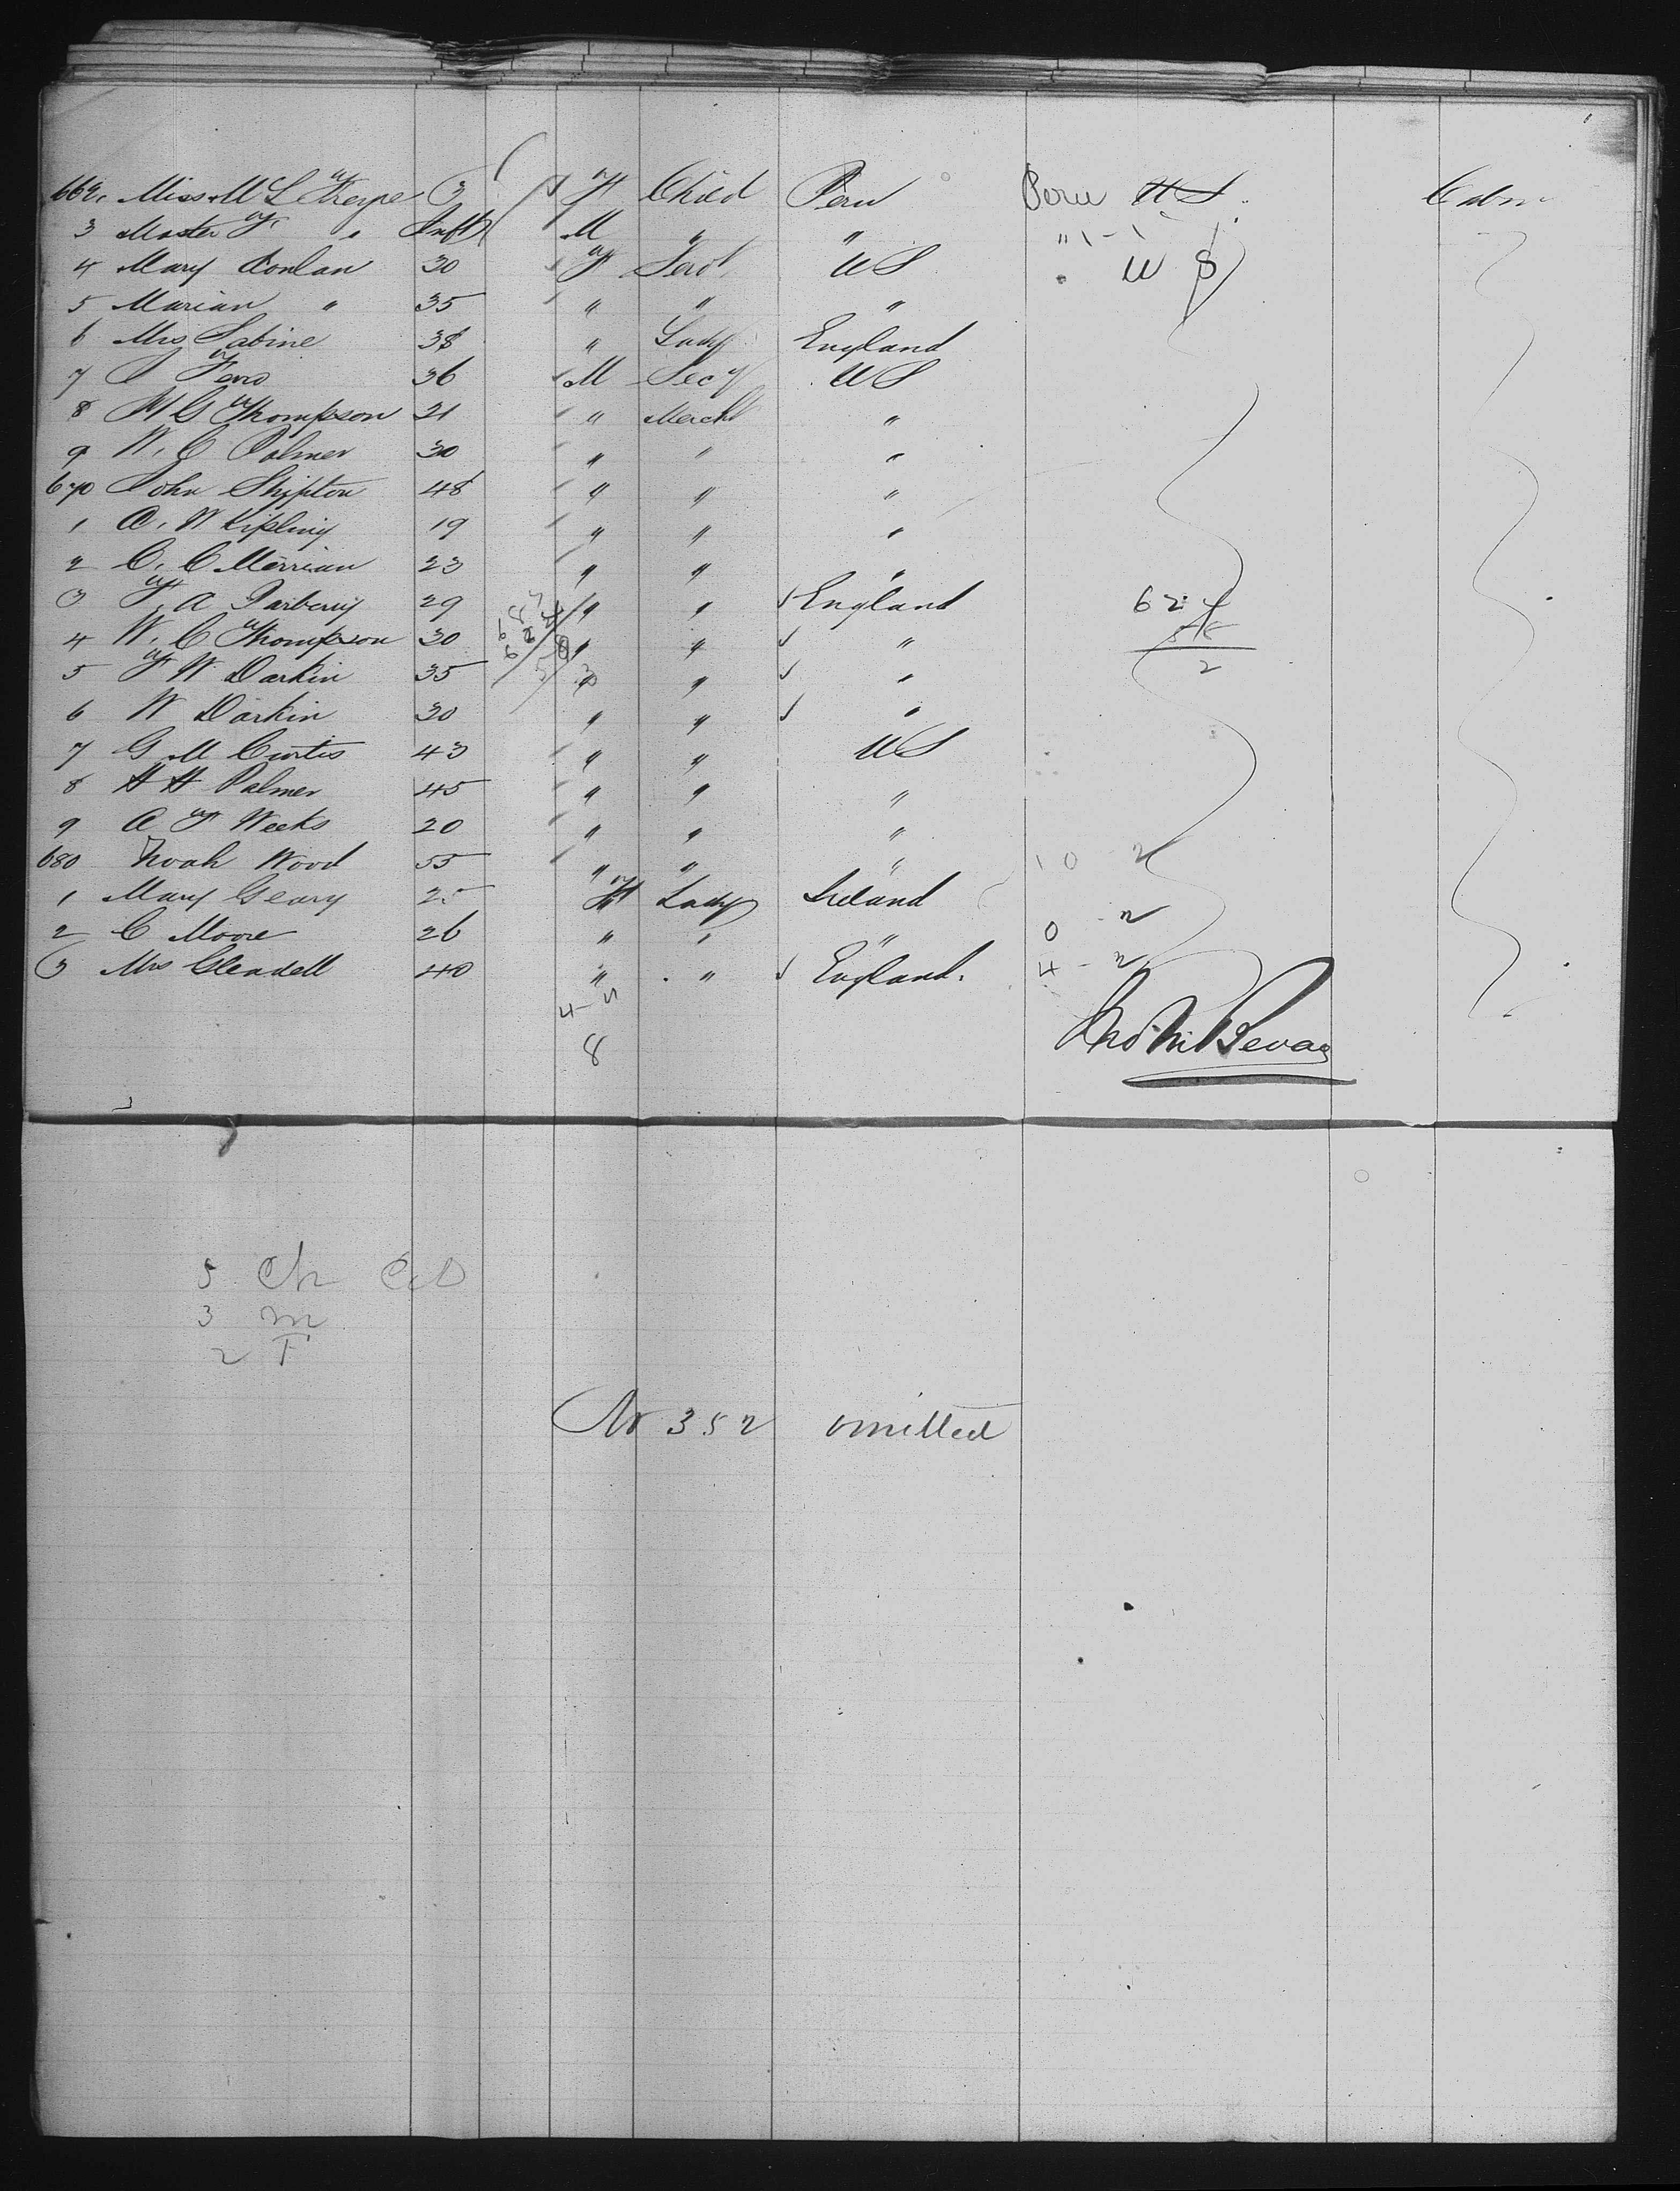 662. Miss M L Thorpe 3 F Child Peru Peru U S Cabin
3 Master F " Inft M " " "
4 Mary Conlan 30 F Servt U S U S
5 Marian " 35 " " "
6 Mrs Sabine 38 " Lady England
7 36 M Secy U S
8 W G Thompson 21 " Mercht "
9 W. C Palmer 30 " " "
670 John Shipton 48 " " "
1 A. W Kipling 19 " " "
2 C. C Merriam 23 " " "
3 F. A Parberry 29 " " England 624
4 W. C Thompson 30 " " "
5 F W Darkin 35 " " " 2
6 W Darkin 30 " " "
7 G M Curtis 43 " " U S
8 H H Palmer 45 " " "
9 A F Weeks 20 " " "
680 Noah Wood 55 " " " 10 - 2
1 Mary Geary 25 F Lady Ireland
2 C Moore 26 " " " 0 - 2
3 Mrs Glendell 40 " " England. 4 - 2
8
5 Ch Cab
3 m
2 F
No 352 omitted